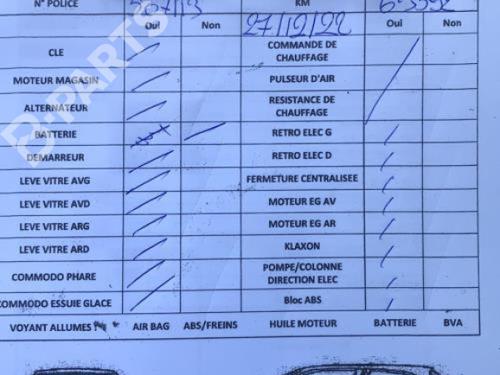 N° POLICE KM
Oui Non 27/12/22 Oui Non
CLE COMMANDE DE CHAUFFAGE
MOTEUR MAGASIN PULSEUR D'AIR
ALTERNATEUR RESISTANCE DE CHAUFFAGE
BATTERIE RETRO ELEC G
DEMARREUR RETRO ELEC D
LEVE VITRE AVG FERMETURE CENTRALISEE
LEVE VITRE AVD MOTEUR EG AV
LEVE VITRE ARG MOTEUR EG AR
LEVE VITRE ARD KLAXON
COMMODO PHARE POMPE/COLONNE DIRECTION ELEC
COMMODO ESSUIE GLACE Bloc ABS
VOYANT ALLUMES AIR BAG ABS/FREINS HUILE MOTEUR BATTERIE BVA
D-PARTS